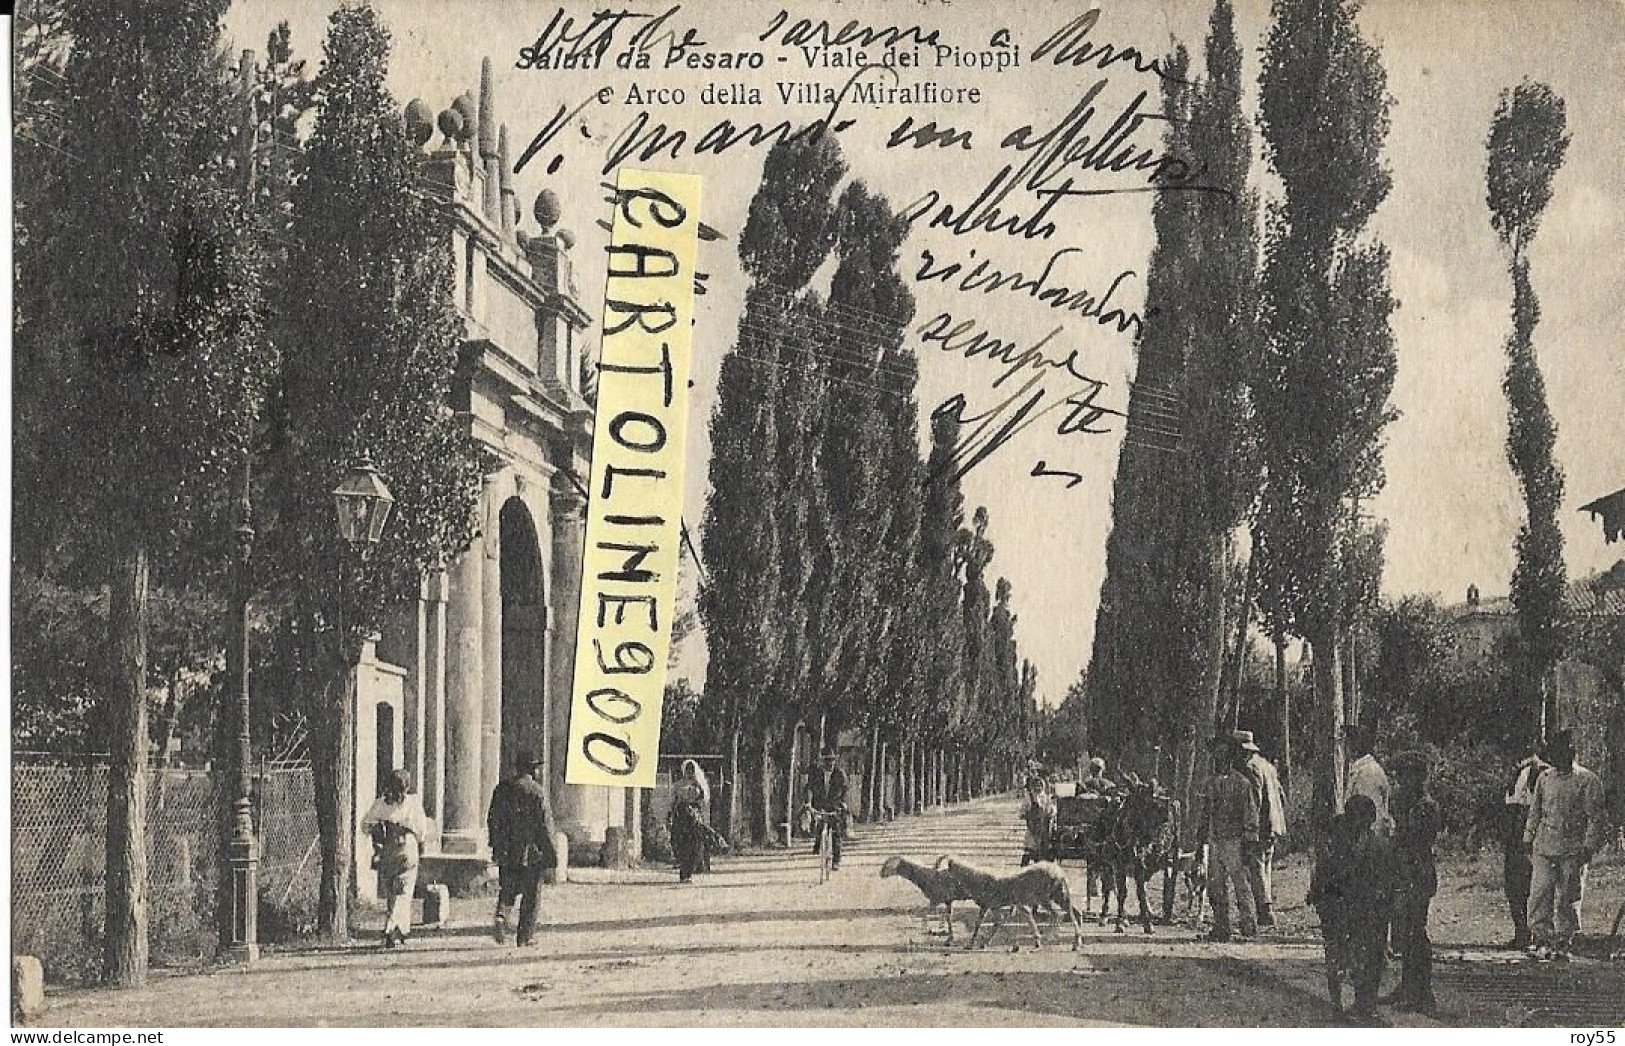 Saluti da Pesaro - Viale dei Pioppi
e Arco della Villa Miralfiore
saremo a
Vi mando un affettuoso
saluti
ricordandovi
sempre
affte
CARTOLINE900
roy55